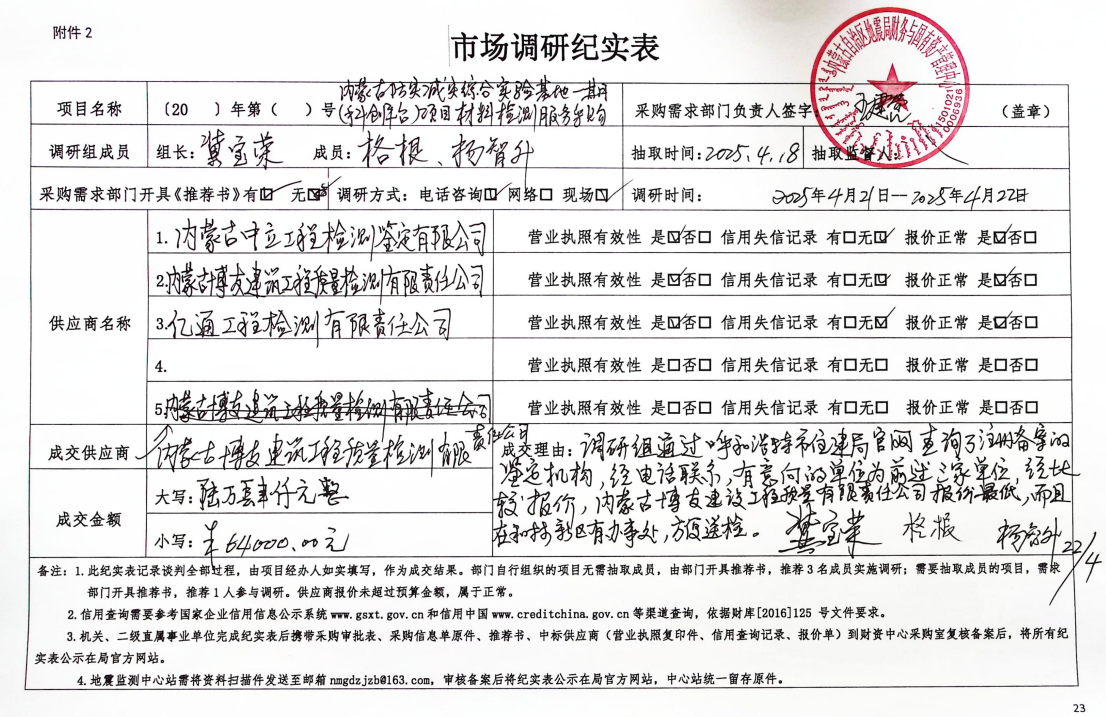 附件 2
市场调研纪实表
项目名称 (20 )年第( )号 内蒙古防灾减灾综合实验基地一期
(科创平台)项目材料检测服务采购
采购需求部门负责人签字: (盖章)
内蒙古自治区地震局财务与国有资产管理中心
调研组成员 组长: 龚宝荣 成员: 格根、杨智升 抽取时间: 2025.4.18 抽取监督人:
采购需求部门开具《推荐书》有☑ 无 调研方式: 电话咨询☑ 网络□ 现场☑ 调研时间: 2025年4月21日—2025年4月22日
供应商名称
1.内蒙古中立工程检测鉴定有限公司 营业执照有效性 是☑否□ 信用失信记录 有□无☑ 报价正常 是☑否□
2.内蒙古博友建筑工程质量检测有限责任公司 营业执照有效性 是☑否□ 信用失信记录 有□无☑ 报价正常 是☑否□
3.亿通工程检测有限责任公司 营业执照有效性 是☑否□ 信用失信记录 有□无☑ 报价正常 是☑否□
4. 营业执照有效性 是□否□ 信用失信记录 有□无□ 报价正常 是□否□
5.内蒙古博友建筑工程质量检测有限责任公司 营业执照有效性 是□否□ 信用失信记录 有□无□ 报价正常 是□否□
成交供应商 内蒙古博友建筑工程质量检测有限责任公司
成交金额
大写: 陆万肆仟元整
小写: ¥64000.00元
成交理由: 调研组通过呼和浩特市住建局官网查询了注册备案的
鉴定机构,经电话联系,有意向的单位为前述三家单位,经比
较报价,内蒙古博友建设工程质量有限责任公司报价最低,而且
在和林新区有办事处,方便送检。 龚宝荣 格根 杨智升 22/4
备注: 1.此纪实表记录谈判全部过程,由项目经办人如实填写,作为成交结果。部门自行组织的项目无需抽取成员,由部门开具推荐书,推荐3名成员实施调研;需要抽取成员的项目,需求
部门开具推荐书,推荐1人参与调研。供应商报价未超过预算金额,属于正常。
2.信用查询需要参考国家企业信用信息公示系统 www.gsxt.gov.cn 和信用中国 www.creditchina.gov.cn 等渠道查询,依据财库[2016]125 号文件要求。
3.机关、二级直属事业单位完成纪实表后携带采购审批表、采购信息单原件、推荐书、中标供应商(营业执照复印件、信用查询记录、报价单)到财资中心采购室复核备案后,将所有纪
实表公示在局官方网站。
4.地震监测中心站需将资料扫描件发送至邮箱 nmgdzjzb@163.com,审核备案后将纪实表公示在局官方网站,中心站统一留存原件。
23